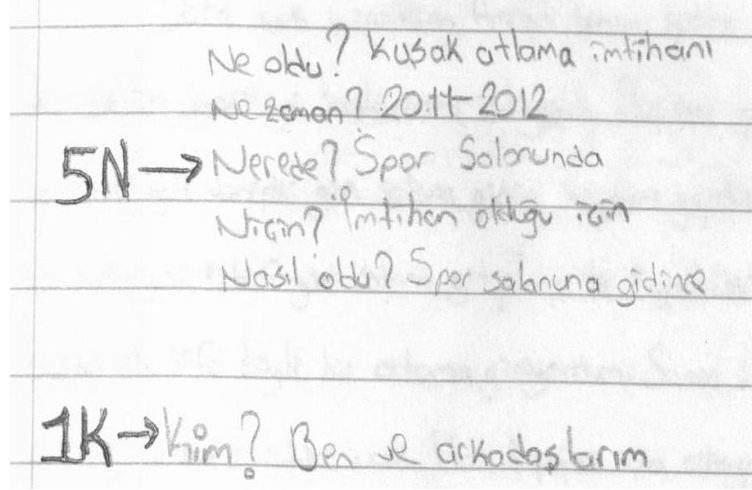 Ne oldu? Kuşak atlama imtihanı
Ne zaman? 2011-2012
5N → Nerede? Spor Salonunda
Niçin? İmtihan olduğu için
Nasıl oldu? Spor salonuna gidince
1K → Kim? Ben ve arkadaşlarım